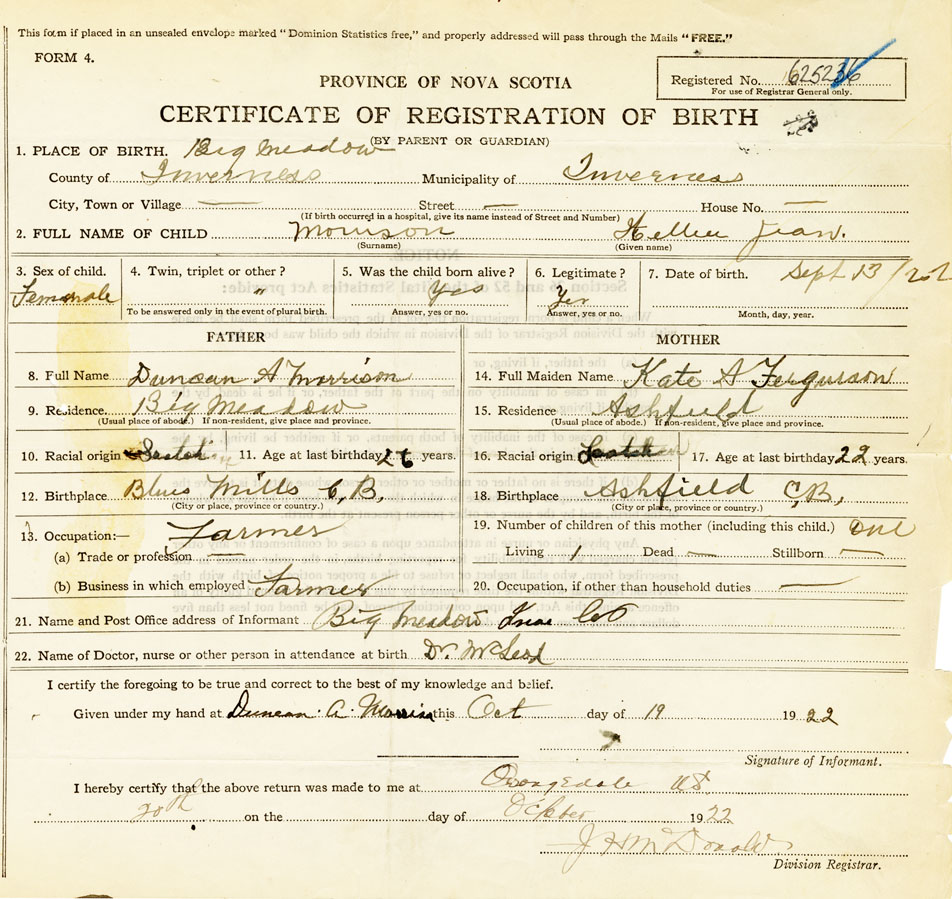 This form if placed in an unsealed envelope marked "Dominion Statistics free," and properly addressed will pass through the Mails "FREE."
FORM 4.
PROVINCE OF NOVA SCOTIA
Registered No. 625236
For use of Registrar General only.
CERTIFICATE OF REGISTRATION OF BIRTH
(BY PARENT OR GUARDIAN)
1. PLACE OF BIRTH. Big Meadow
County of Inverness Municipality of Inverness
City, Town or Village — Street — House No. —
(If birth occurred in a hospital, give its name instead of Street and Number)
2. FULL NAME OF CHILD Morrison Hellen Jean.
(Surname) (Given name)
3. Sex of child. 4. Twin, triplet or other? 5. Was the child born alive? 6. Legitimate? 7. Date of birth. Sept 13
Female " Yes Yes
To be answered only in the event of plural birth. Answer, yes or no. Answer, yes or no. Month, day, year.
FATHER MOTHER
8. Full Name Duncan A Morrison 14. Full Maiden Name Kate A Ferguson
9. Residence Big Meadow 15. Residence Ashfield
(Usual place of abode.) If non-resident, give place and province. (Usual place of abode.) If non-resident, give place and province.
10. Racial origin Scotch 11. Age at last birthday 26 years. 16. Racial origin Scotch 17. Age at last birthday 22 years.
12. Birthplace Blues Mills C,B, 18. Birthplace Ashfield C,B,
(City or place, province or country.) (City or place, province or country.)
13. Occupation:— Farmer 19. Number of children of this mother (including this child.) one
(a) Trade or profession — Living 1 Dead — Stillborn —
(b) Business in which employed Farmer 20. Occupation, if other than household duties —
21. Name and Post Office address of Informant Big Meadow
22. Name of Doctor, nurse or other person in attendance at birth Dr. McLeod
I certify the foregoing to be true and correct to the best of my knowledge and belief.
Given under my hand at Duncan A Morrison this Oct day of 19 1922
Signature of Informant.
I hereby certify that the above return was made to me at Orangedale NS
20th on the day of October 1922
J H McDonald
Division Registrar.